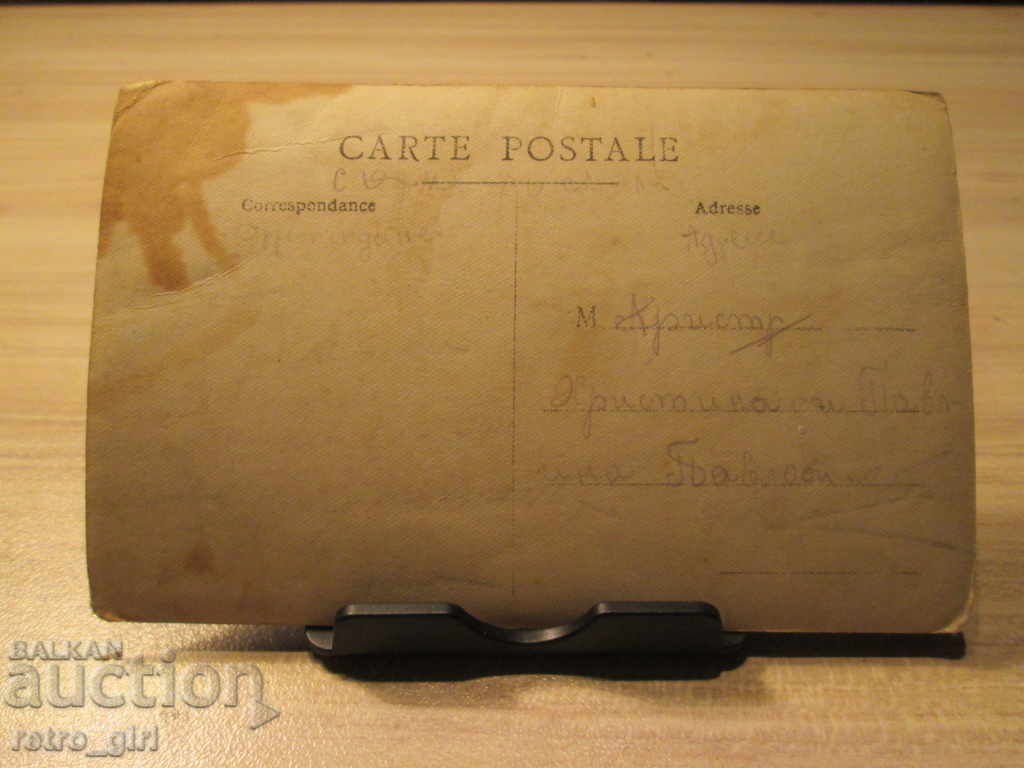 CARTE POSTALE
с
Correspondance
Adresse
Адресе
M Христр
Христина
Павл-
ина
BALKAN
auction
retro_girl